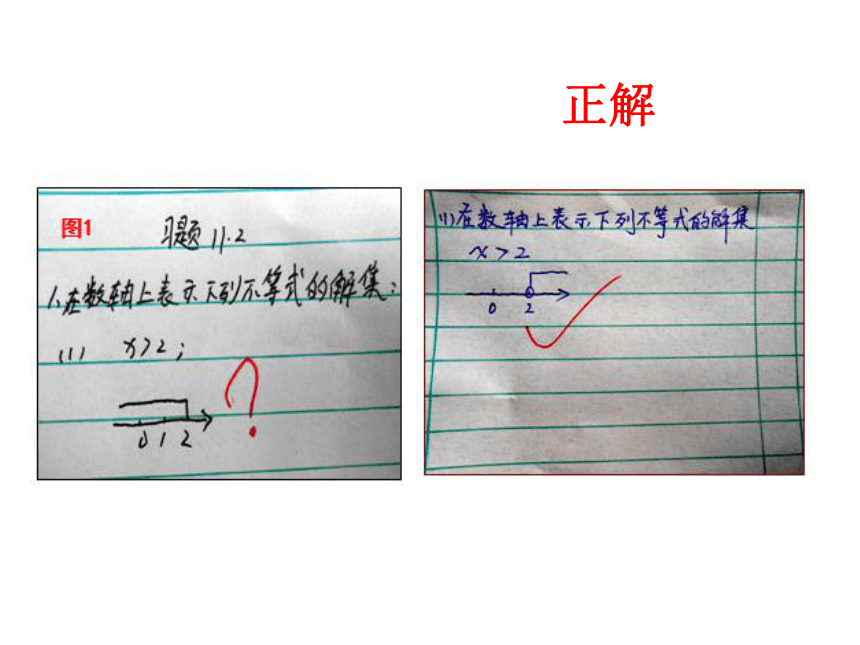 正解
图1
习题 11.2
1、在数轴上表示下列不等式的解集:
(1) x>2;
?
0 1 2
(1)在数轴上表示下列不等式的解集
x>2
0 2